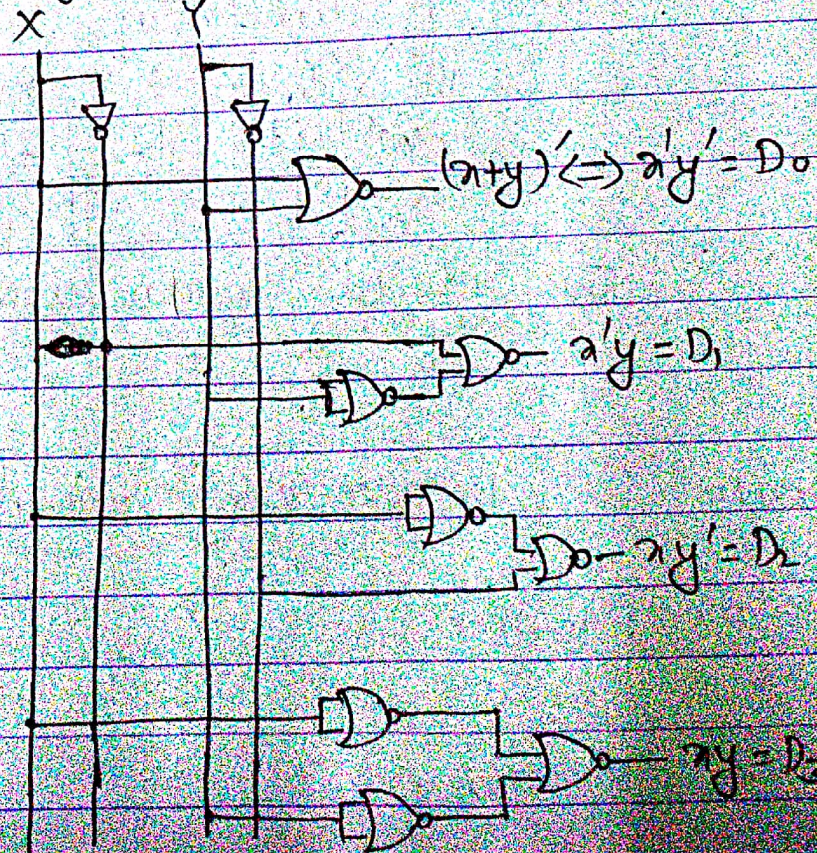 X Y
(x+y)' <=> x'y' = D0
x'y = D1
xy' = D2
xy = D3